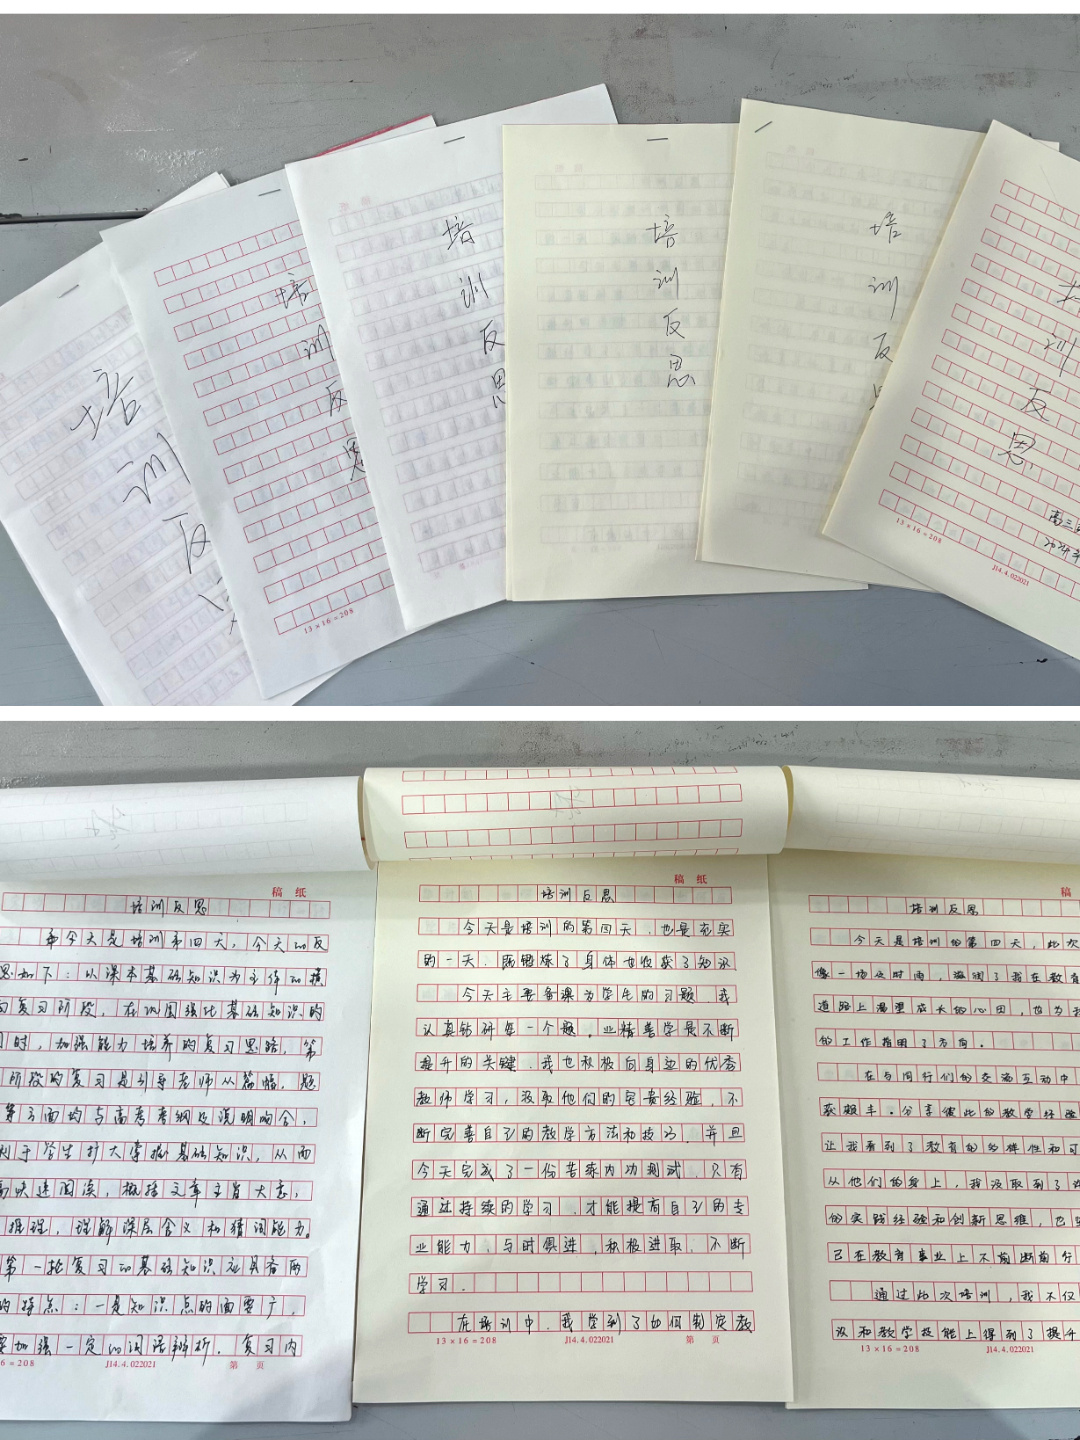 培训反思
培训反思
13×16=208
培训反思
培训反思
培训反
训反思
高三
13×16=208
J14.4.022021
稿 纸
培训反思
今天是培训第四天,今天的反
思如下:以课本基础知识为主体的横
向复习阶段,在巩固强化基础知识的
同时,加强能力培养的复习思路,第
阶段的复习是引导老师从篇幅,题
等方面均与高考考纲及说明吻合,
利于学生扩大掌握基础知识,从而
高快速阅读,概括文章主旨大意,
推理,理解深层含义和猜词能力。
第一轮复习的基础知识应具备两
的特点:一是知识点的面要广,
要加强一定的词语辨析.复习内
6=208
J14.4.022021
第 页
稿 纸
培训反思
今天是培训的第四天,也是充实
的一天,既锻炼了身体也收获了知识
今天主要备课为学生的习题,我
认真钻研每一个题。业精善学是不断
提升的关键,我也积极向身边的优秀
教师学习,汲取他们的宝贵经验,不
断完善自己的教学方法和技巧,并且
今天完成了一份苦练内功测试,只有
通过持续的学习,才能提高自己的专
业能力,与时俱进,积极进取,不断
学习.
在培训中,我学到了如何制定教
13×16=208
J14.4.022021
第 页
稿
培训反思
今天是培训的第四天,此次
像一场及时雨,滋润了我在教育
道路上渴望成长的心田,也为我
的工作指明了方向。
在与同行们的交流互动中
获颇丰.分享彼此的教学经验
让我看到了教育的多样性和可
从他们的身上,我汲取到了许
的实践经验和创新思维,也
己在教育事业上不断前行
通过此次培训,我不仅
识和教学技能上得到了提升
13×16=208
J14.4.022021